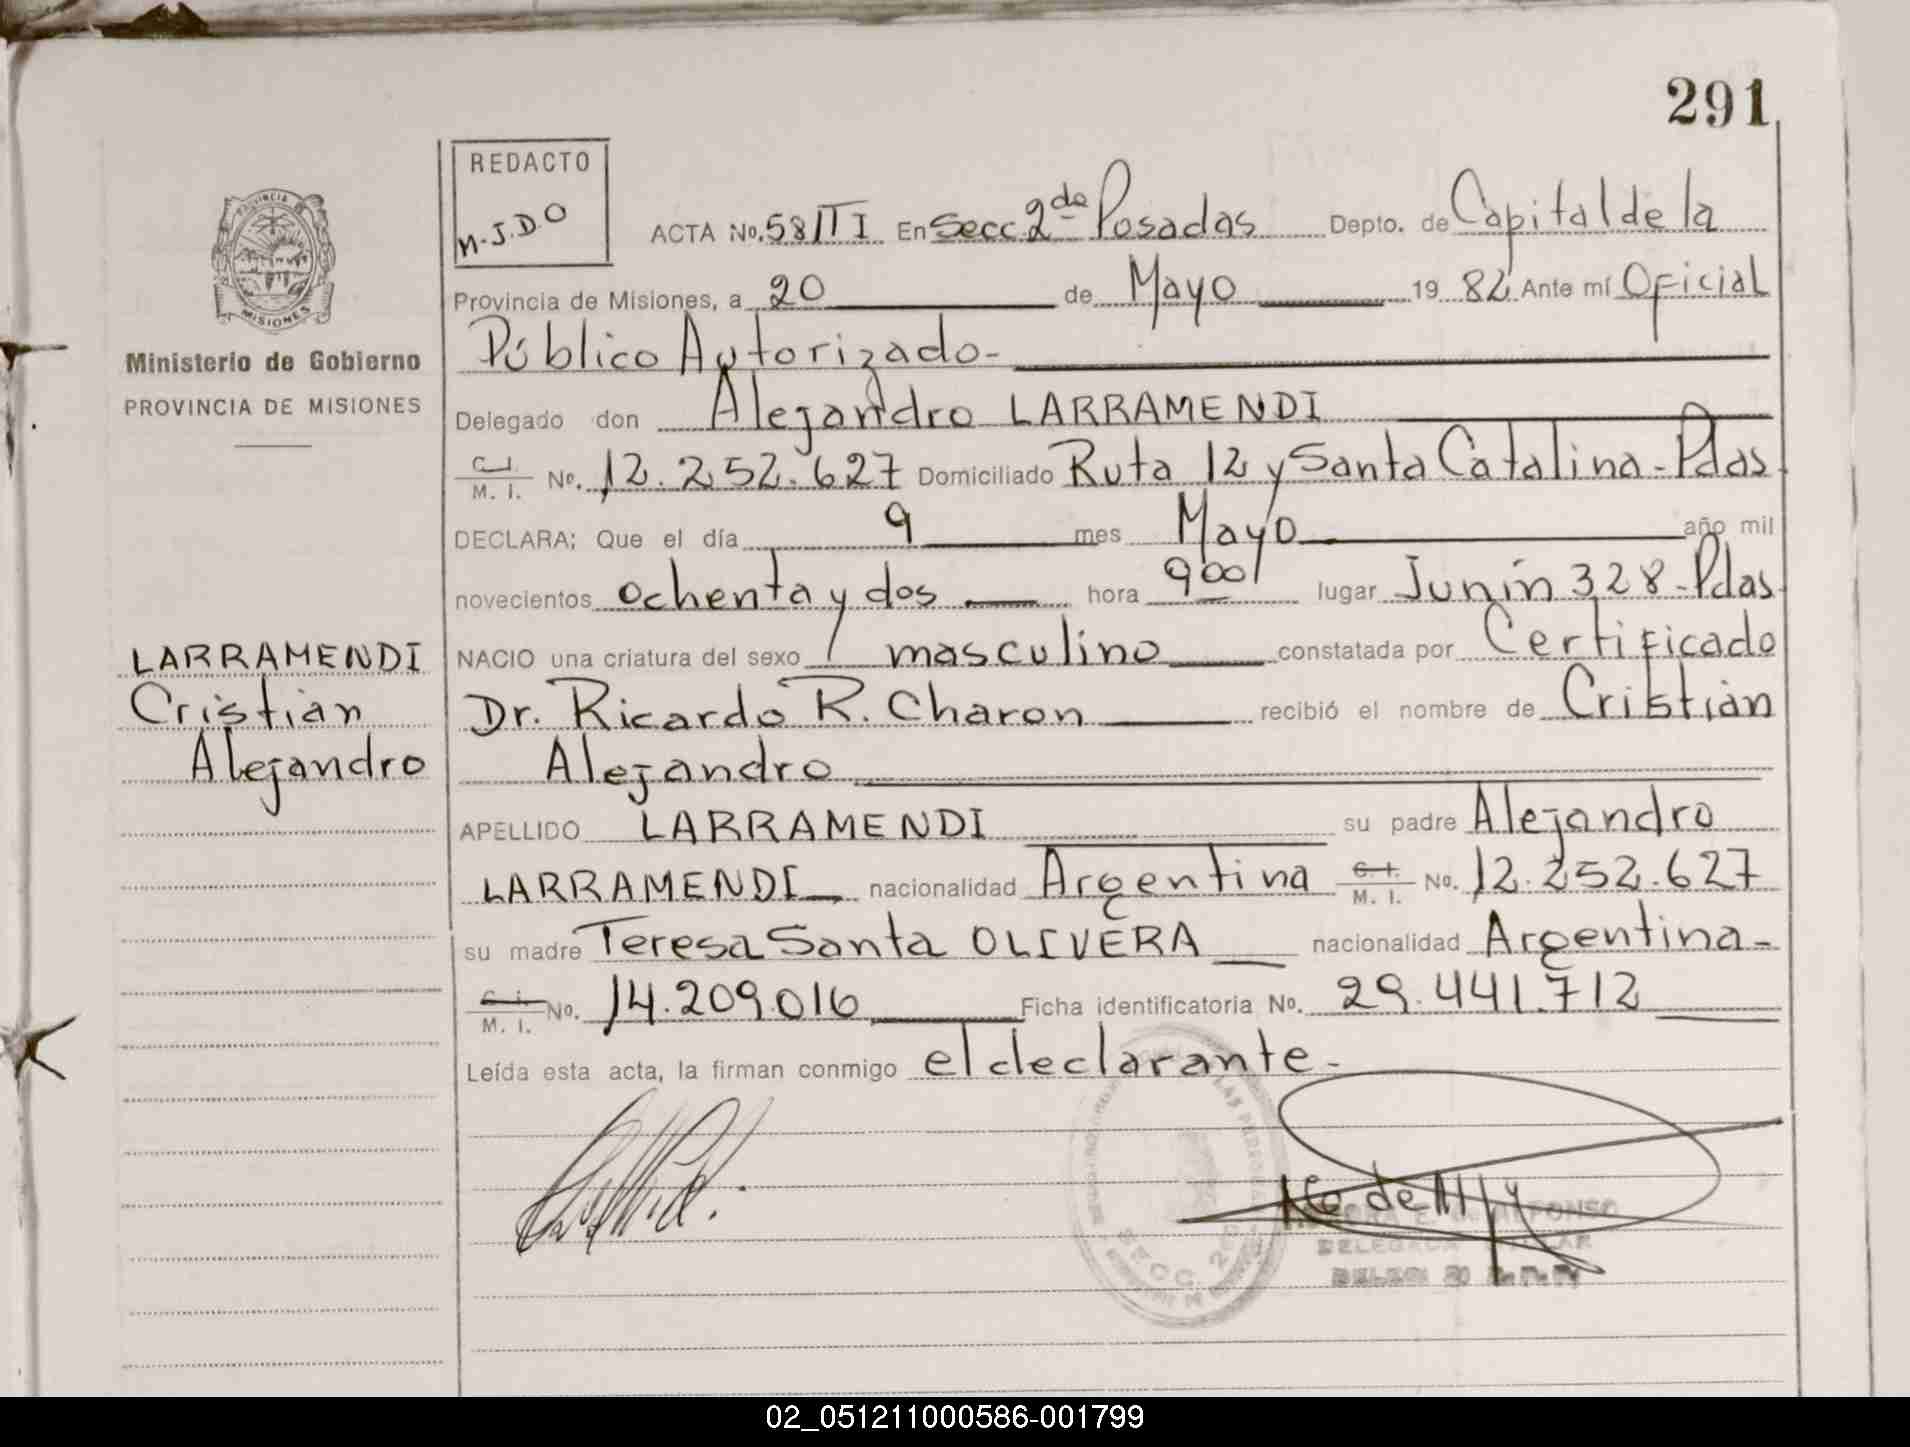 291
REDACTO
M.J.D.O
ACTA No. 58/TI En Secc. 2da Posadas Depto. de Capital de la
Provincia de Misiones, a 20 de Mayo 1982 Ante mí Oficial
Público Autorizado-
Delegado don Alejandro LARRAMENDI
C.I. / M. I. No. 12.252.627 Domiciliado Ruta 12 y Santa Catalina-Pdas
DECLARA; Que el día 9 mes Mayo año mil
novecientos ochenta y dos hora 9 00 lugar Junín 328-Pdas.
NACIO una criatura del sexo masculino constatada por Certificado
Dr. Ricardo R. Charon recibió el nombre de Cristian
Alejandro
APELLIDO LARRAMENDI su padre Alejandro
LARRAMENDI nacionalidad Argentina C.I. / M. I. No. 12.252.627
su madre Teresa Santa OLIVERA nacionalidad Argentina-
C.I. / M. I. No. 14.209.016 Ficha identificatoria No. 29.441.712
Leída esta acta, la firman conmigo el declarante-
PROVINCIA
MISIONES
Ministerio de Gobierno
PROVINCIA DE MISIONES
LARRAMENDI
Cristian
Alejandro
LAS PERSONAS
SECC. 2
E. de ALFONSO
DELEGADA
02_051211000586-001799